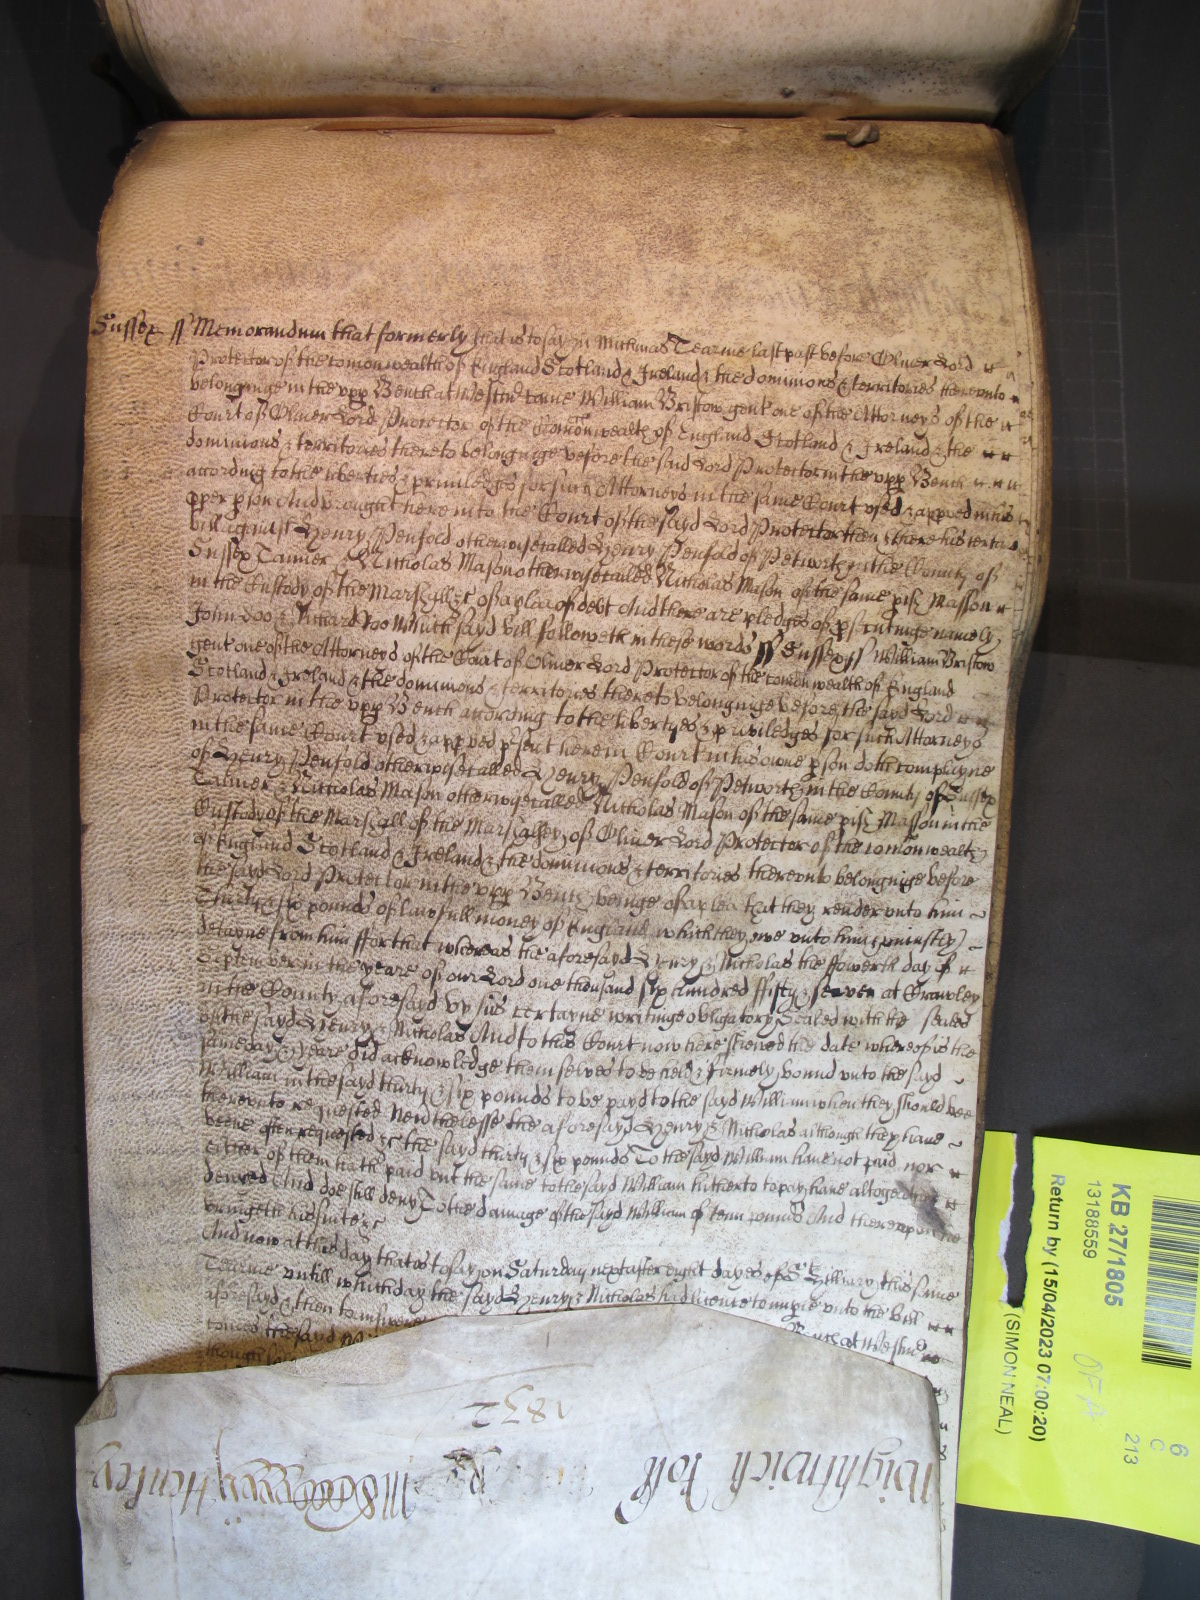 Sussex ss Memorandum that formerly that is to say in Michmas Tearme last past before Oliver Lord
Protector of the comonwealth of England Scotland & Ireland & the dominions & territories thereunto
belonginge in the upp Bench at Westmr came William Bristow gent one of the Attorneys of the
Court of Oliver Lord Protector of the Comonwealth of England Scotland & Ireland & the
dominions & territories thereto belonginge before the said Lord Protector in the upp Bench
according to the liberties & priviledges for such Attorneys in the same Court used & apped in his
pper pson And brought here into the Court of the sayd Lord Protector then & there his certaine
bill against Henry Penfold otherwise called Henry Penfold of Petworth in the County of
Sussex Tanner & Nicholas Mason otherwise called Nicholas Mason of the same pish Masson
in the Custody of the Marshall &c of a plea of debt And there are pledges of psecutinge namely
John Doo & Richard Roo Which sayd bill followeth in these words ss Sussex ss William Bristow
gent one of the Attorneys of the Court of Oliver Lord Protector of the comonwealth of England
Scotland & Ireland & the dominions & territories thereto belonginge before the sayd Lord
Protector in the upp Bench according to the libertyes & priviledges for such Attorneys
in the same Court used & apped psent here in Court in his owne pson doth complayne
of Henry Penfold otherwise called Henry Penfold of Petworth in the County of Sussex
Tanner & Nicholas Mason otherwise called Nicholas Mason of the same pish Masson in the
Custody of the Marshall of the Marshalsey of Oliver Lord Protector of the comonwealth
of England Scotland & Ireland & the dominions & territories thereunto belonginge before
the sayd Lord Protector in the upp Bench beinge of a plea that they render unto him
Thirty & six pounds of lawfull money of England which they owe unto him & uniustly
detayne from him ffor that whereas the aforesayd Henry & Nicholas the ffowerth day of
September in the yeare of our Lord one thousand six hundred ffifty & seaven at Crawley
in the County aforesayd by his certayne writinge obligatory Sealed with the seales
of the sayd Henry & Nicholas And to this Court now here shewed the date whereof is the
same day & yeare did acknowledge themselves to be held & firmely bound unto the sayd
William in the sayd thirty & six pounds to be payd to the sayd William when they should bee
thereunto requested Neverthelesse the aforesayd Henry & Nicholas although they have
beene often requested &c the sayd thirty & six pounds To the sayd William have not paid nor
either of them hath paid but the same to the sayd William hitherto to pay have altogeather
denyed And doe still deny To the damage of the sayd William of tenn pounds And thereupon he
bringeth his suite &c
And now at this day that is to say on Saturday next after eight dayes of St Hillary this same
Tearme untill which day the sayd Henry & Nicholas had licence to imparle unto the bill
aforesayd & then to answere Bench at Westmr
comes the sayd Wi
though
1832
Wightwich
Henley
KB 27/1805
13188559
Return by (15/04/2023 07:00:20)
(SIMON NEAL)
6
C
213